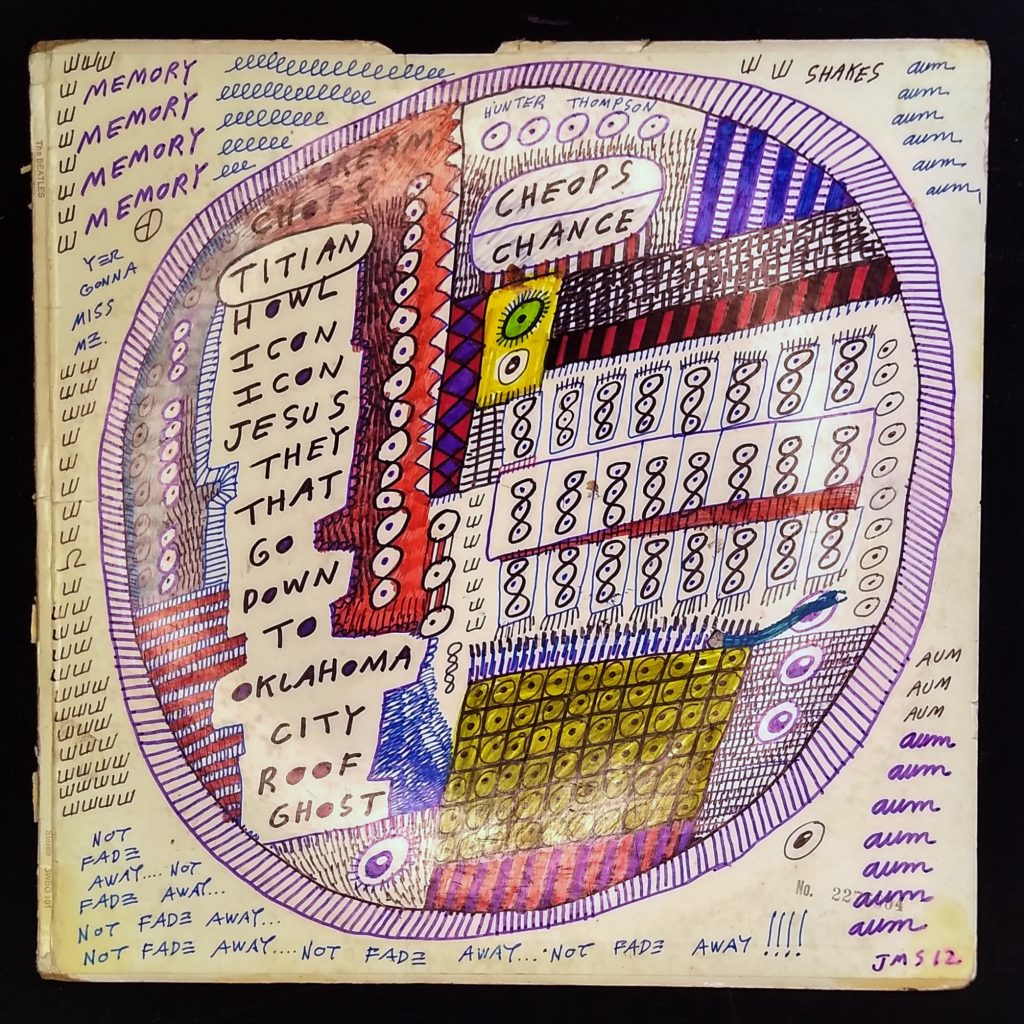 MEMORY
MEMORY
MEMORY
MEMORY
YER
GONNA
MISS
ME.
The BEATLES
HUNTER THOMPSON
SHAKES
aum
aum
aum
aum
aum
aum
DREAM
CHOPS
CHEOPS
CHANCE
TITIAN
HOWL
ICON
ICON
JESUS
THEY
THAT
GO
DOWN
TO
OKLAHOMA
CITY
ROOF
GHOST
AUM
AUM
AUM
aum
aum
aum
aum
aum
aum
aum
Stereo SWBO 101
No.
NOT
FADE
AWAY....NOT
FADE AWAY...
NOT FADE AWAY...
NOT FADE AWAY....NOT FADE AWAY...NOT FADE AWAY !!!!
JMS12